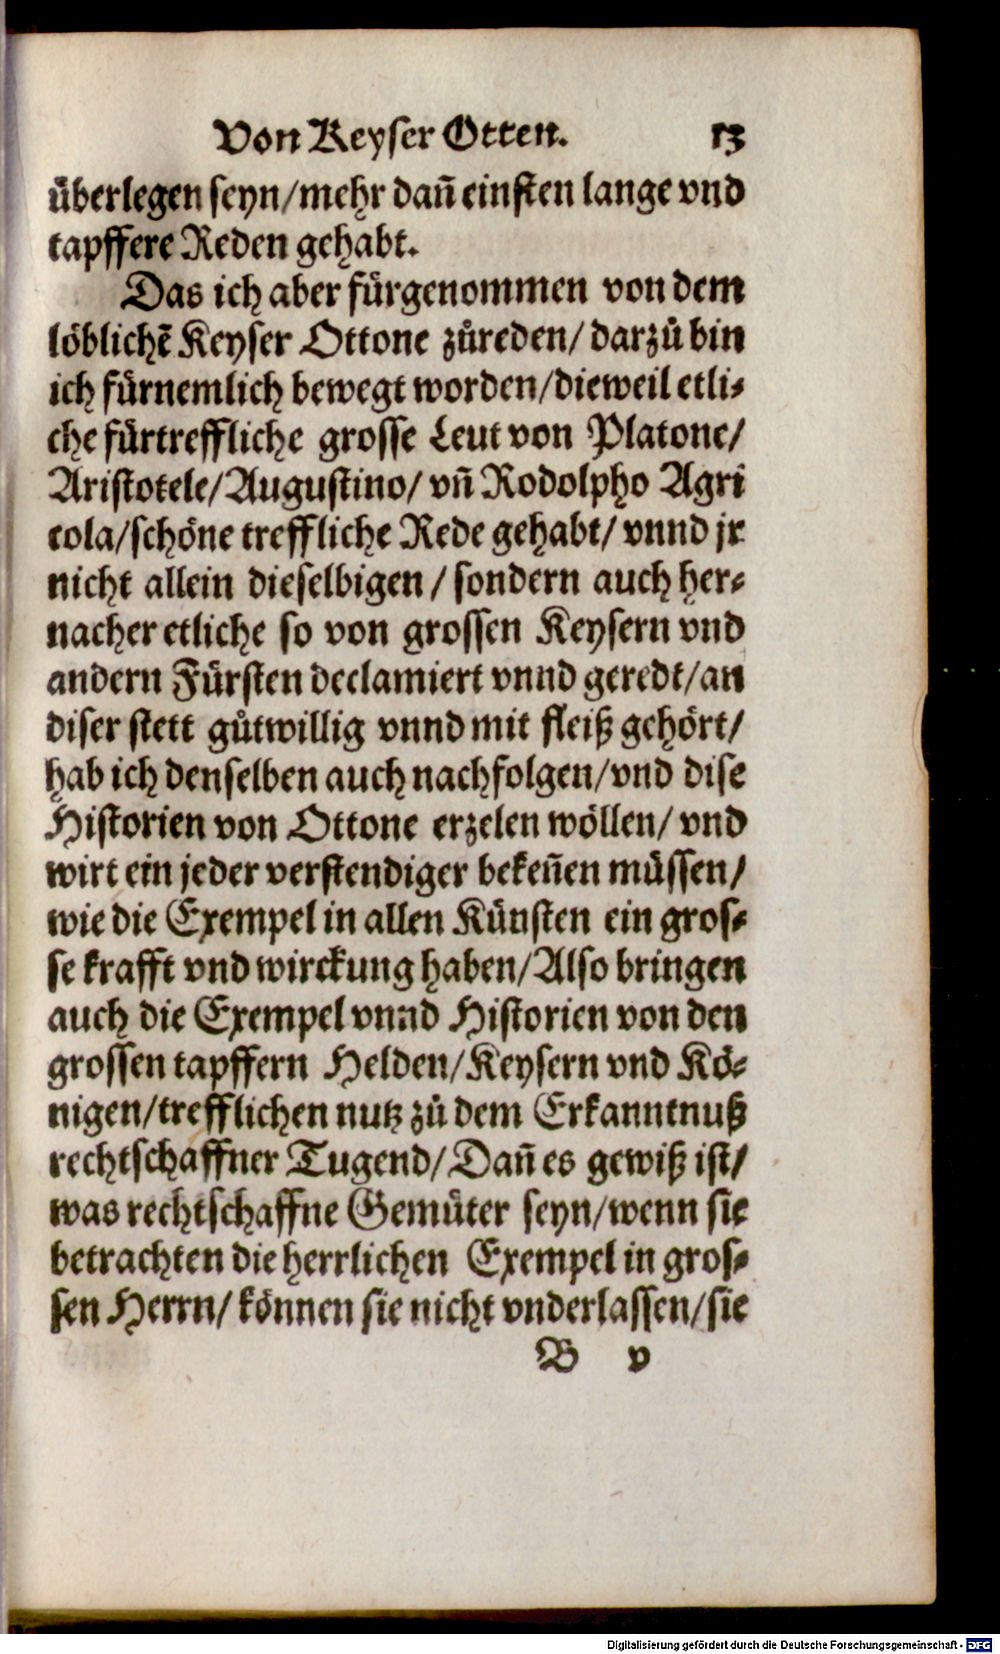 Von Keyser Otten. 13
überlegen seyn/mehr dañ einsten lange vnd
tapffere Reden gehabt.
Das ich aber fürgenommen von dem
löblichẽ Keyser Ottone zůreden/ darzů bin
ich fürnemlich bewegt worden/dieweil etli-
che fürtreffliche grosse Leut von Platone/
Aristotele/Augustino/ vñ Rodolpho Agri
cola/schöne treffliche Rede gehabt/ vnnd jr
nicht allein dieselbigen / sondern auch her-
nacher etliche so von grossen Keysern vnd
andern Fürsten declamiert vnnd geredt/an
diser stett gůtwillig vnnd mit fleiß gehört/
hab ich denselben auch nachfolgen/vnd dise
Historien von Ottone erzelen wöllen/ vnd
wirt ein jeder verstendiger bekeñen müssen/
wie die Exempel in allen Künsten ein gros-
se krafft vnd wirckung haben/Also bringen
auch die Exempel vnnd Historien von den
grossen tapffern Helden/Keysern vnd Kö-
nigen/trefflichen nutz zů dem Erkanntnuß
rechtschaffner Tugend/Dañ es gewiß ist/
was rechtschaffne Gemüter seyn/wenn sie
betrachten die herrlichen Exempel in gros-
sen Herrn/ können sie nicht vnderlassen/sie
B v
Digitalisierung gefördert durch die Deutsche Forschungsgemeinschaft - DFG